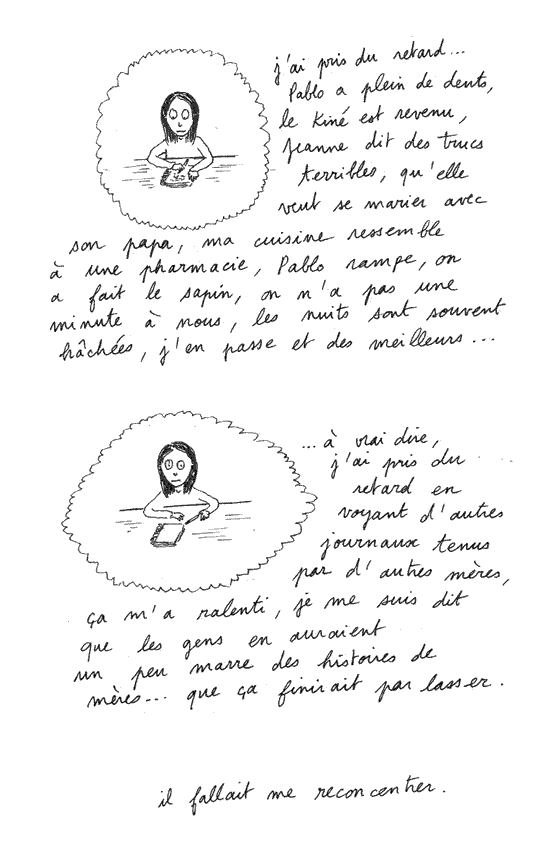 j'ai pris du retard...
Pablo a plein de dents,
le Kiné est revenu,
Jeanne dit des trucs
terribles, qu'elle
veut se marier avec
son papa, ma cuisine ressemble
à une pharmacie, Pablo rampe, on
a fait le sapin, on n'a pas une
minute à nous, les nuits sont souvent
hâchées, j'en passe et des meilleurs...
...à vrai dire,
j'ai pris du
retard en
voyant d'autres
journaux tenus
par d'autres mères,
ça m'a ralenti, je me suis dit
que les gens en auraient
un peu marre des histoires de
mères... que ça finirait par lasser.
il fallait me reconcentrer.